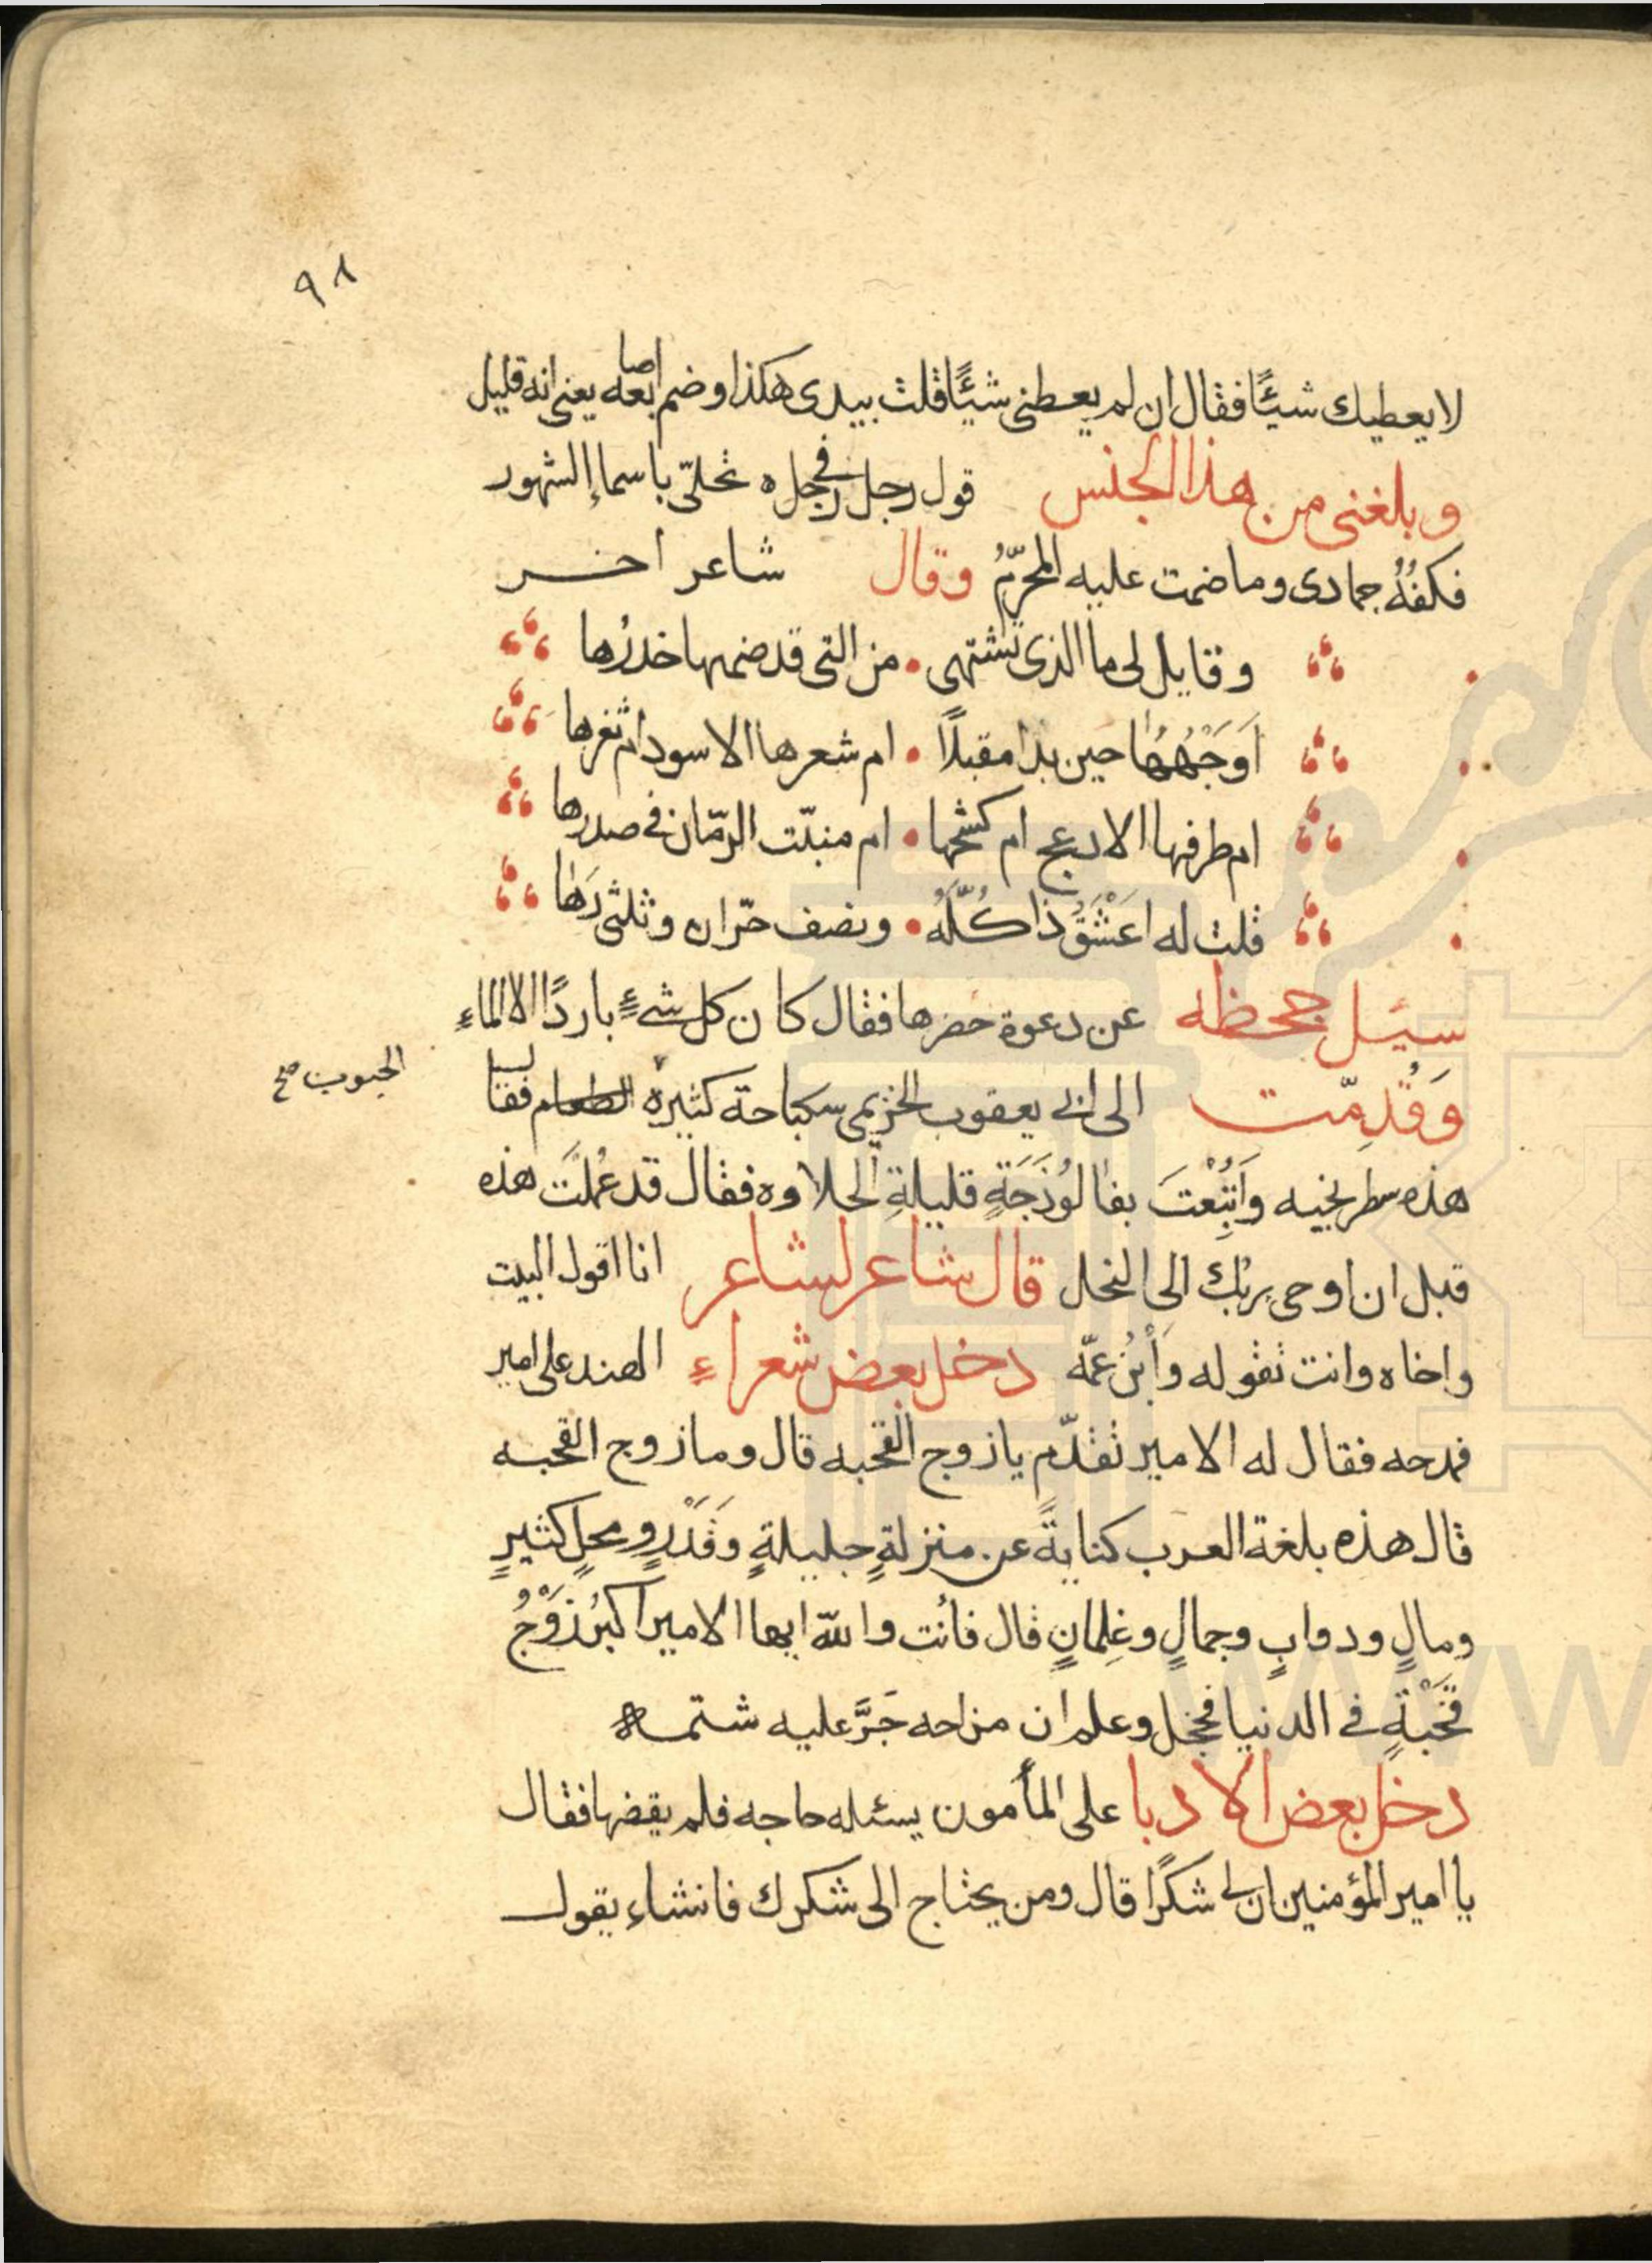 ٩٨
لا يعطيك شيئًا فقال ان لم يعطنى شيئًا قلت بيدى هكذا وضم اصابعه يعنى انه قليل
وبلغنى من هذا الجنس قول رجل فى رجل ه تحلّى باسماإ الشهور
فكفُّهُ جمادى وما ضمت عليه المحرّمُ وقال شاعر اخر
وقايل لى ما الذى تشتهى • من التى قد ضمها خدرُها
اَوَجْهُهُا حين بدا مقبلًا • ام شعرها الاسود ام ثغرها
ام طرفها الادعج ام كشحها • ام منبّت الرمّان فى صدرها
قلت له اعَشْقُ ذا كُلَّهُ • ونصف حرّان وثلثى رَها
سيئل جحظه عن دعوة حضرها فقال كان كل شئٍ باردًا الا الماءِ
وَقُدِمّت الى ابى يعقوب الخزيمى سكباجة كثيرة الطعام فقال
الحبوب صح
هذه سطرنجيه وَاَتُبِعْتَ بفالوُذَجَةٍ قليلةِ الحلاوه فقال قد عُملَت هذه
قبل ان اوحى ربّك الى النحل قال شاعر لشاعر انا اقول البيت
واخاه وانت تقوله وَاْبنُ عمّه دخل بعض شعراءِ الهند على امير
فمدحه فقال له الامير تقدّم يا زوج القحبه قال وما زوج القحبه
قال هذه بلغة العرب كنايةً عن منزلةٍ جليلةٍ وقَدْرٍ ومحلٍ كثيرٍ
ومالٍ ودوابٍ وجمالٍ وغِلمانٍ قال فأنت والله ايها الامير اكبرُ زَوْجُ
قَحْبَةٍ فى الدنيا فخجل وعلم ان مزاحه جَرَّ عليه شتمه
دخل بعض الادبا على المأمون يسئله حاجه فلم يقضها فقال
يا امير المؤمنين ان لى شكرًا قال ومن يحتاج الى شكرك فانشاء يقول